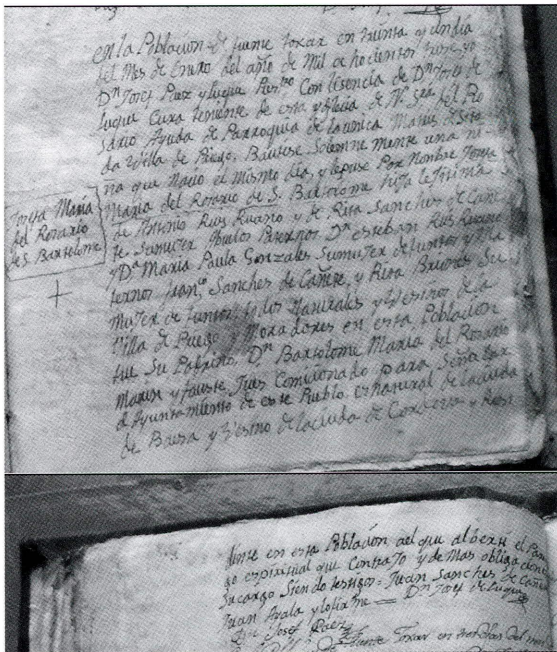 en la Poblacion de fuente toxar en treinta y un dia
del Mes de Enero del año de Mil ochocientos trese, yo
Dn Josef Paez y Luque Pusro Con lesencia de Dn Josef de
Luque Cura teniente de esta yglecia de Na Sra del Ro
sario Ayuda de Parroquia de la unica Matris de
da Villa de Priego, Bautise Solemne mente una ni
na que Nacio el mismo dia, y le puse Por Nombre
Maria del Rosario de S. Bartolome hija lexitima
de Antonio Ruis Ruano y de Rita Sanches de Cañe
te Su muxer Abuelos Paternos Dn esteban Ruis Ruano
y Da Maria Paula Gonzales Su muxer difuntos y Ma
ternos franco Sanches de Cañete, y Rita Briones Su
Muxer difuntos todos Naturales y Vesinos de la
Villa de Priego y Moradores en esta Poblacion
fue Su Padrino Dn Bartolome Maria del Rosario
Juez Comicionado para Señalar
el Ayuntamiento de este Pueblo, es natural de la ciuda
de Baesa y Vesino de la ciuda de Cordova y Resi
Maria
del Rosario
de S. Bartolome
dente en esta Poblacion al que adverti el Paren
go espiritual que Contrajo y demas obligaciones
Su cargo Siendo testigos Juan Sanches de Cañete
Juan Ayala y lo firme = Dn Josef de Luque
Dn Josef Paez
fuente toxar en tres dias del mes